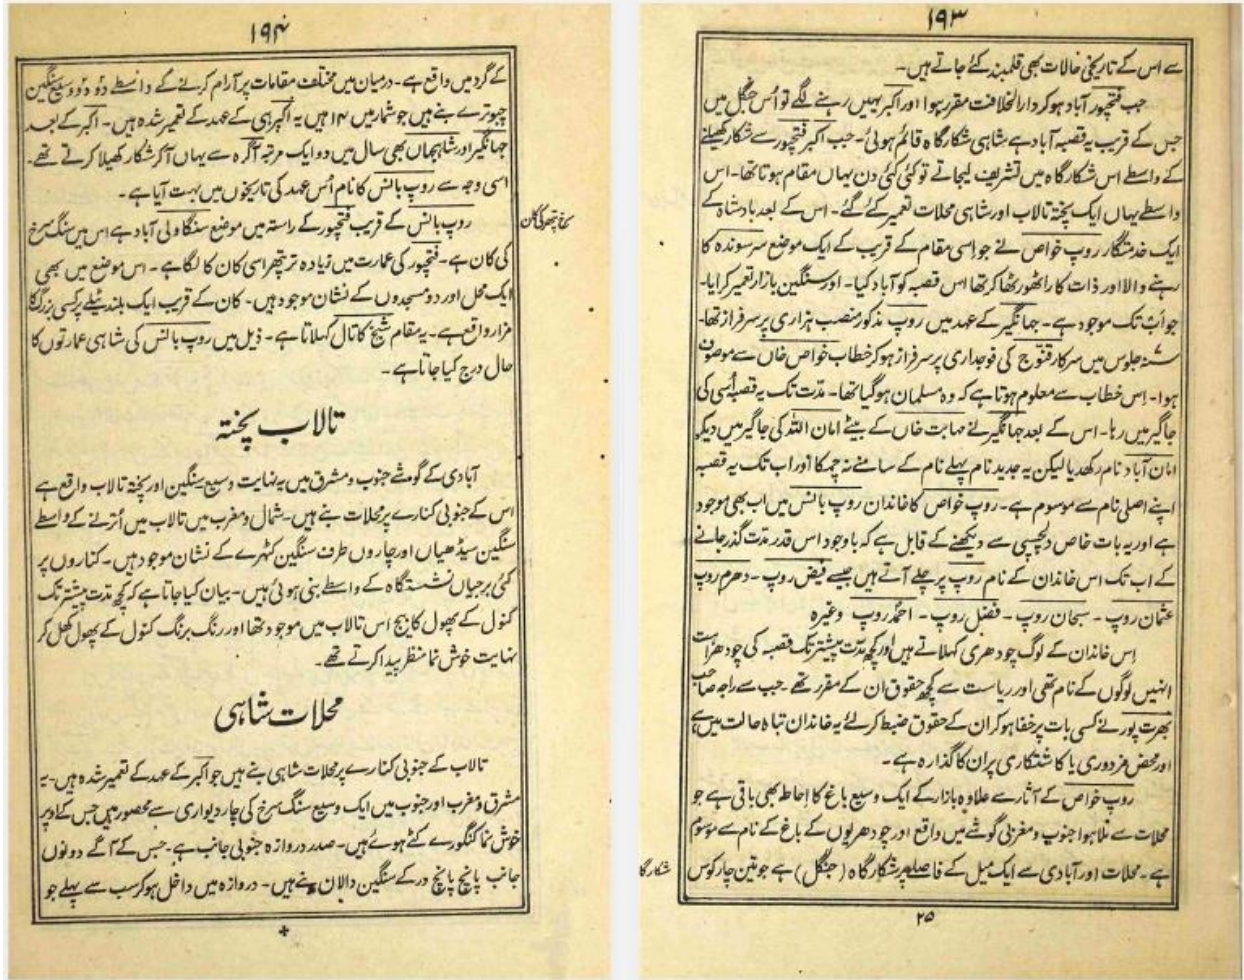 ۱۹۳
سے اس کے تاریخی حالات بھی قلمبند کئے جاتے ہیں۔
جب فتحپور آباد ہو کر دار الخلافت مقرر ہوا اور اکبر یہیں رہنے لگے تو اُس جنگل میں
جس کے قریب یہ قصبہ آباد ہے شاہی شکار گاہ قائم ہوئی۔ جب اکبر فتحپور سے شکار کھیلنے
کے واسطے اس شکار گاہ میں تشریف لیجاتے تو کئی کئی دن یہاں مقام ہوتا تھا۔ اس
واسطے یہاں ایک پختہ تالاب اور شاہی محلات تعمیر کئے گئے۔ اس کے بعد بادشاہ کے
ایک خدمتگار روپ خواص نے جو اسی مقام کے قریب کے ایک موضع سرسوندہ کا
رہنے والا اور ذات کا راٹھور ٹھاکر تھا اس قصبہ کو آباد کیا۔ اور سنگین بازار تعمیر کرایا۔
جو اب تک موجود ہے۔ جہانگیر کے عہد میں روپ مذکور منصب ہزاری پر سرفراز تھا۔
جلوس میں سرکار قنوج کی فوجداری پر سرفراز ہو کر خطاب خواص خاں سے موصوف
ہوا۔ اِس خطاب سے معلوم ہوتا ہے کہ وہ مسلمان ہو گیا تھا۔ مدّت تک یہ قصبہ اُسی کی
جاگیر میں رہا۔ اس کے بعد جہانگیر نے مہابت خاں کے بیٹے امان اللہ کی جاگیر میں دیکر
امان آباد نام رکھدیا لیکن یہ جدید نام پہلے نام کے سامنے نہ چمکا اور اب تک یہ قصبہ
اپنے اصلی نام سے موسوم ہے۔ روپ خواص کا خاندان روپ بانس میں اب بھی موجود
ہے اور یہ بات خاص دلچسپی سے دیکھنے کے قابل ہے کہ باوجود اس قدر مدّت گذر جانے
کے اب تک اس خاندان کے نام روپ پر چلے آتے ہیں جیسے فیض روپ۔ دھرم روپ
عثمان روپ۔ سبحان روپ۔ فضل روپ۔ احمد روپ وغیرہ
اِس خاندان کے لوگ چودھری کہلاتے ہیں اور کچھ مدّت پیشتر تک قصبہ کی چودھراہت
انہیں لوگوں کے نام تھی اور ریاست سے کچھ حقوق ان کے مقرر تھے۔ جب سے راجہ صاحب
بھرت پور نے کسی بات پر خفا ہو کر ان کے حقوق ضبط کر لئے یہ خاندان تباہ حالت میں ہے
اور محض مزدوری یا کاشتکاری پر ان کا گذارہ ہے۔
روپ خواص کے آثار سے علاوہ بازار کے ایک وسیع باغ کا احاطہ بھی باقی ہے جو
محلات سے ملا ہوا جنوب و مغربی گوشے میں واقع اور چودھریوں کے باغ کے نام سے موسوم
ہے۔ محلات اور آبادی سے ایک میل کے فاصلہ پر شکار گاہ (جنگل) ہے جو تین چار کوس
شکار گا
۲۵
۱۹۴
کے گرد میں واقع ہے۔ درمیان میں مختلف مقامات پر آرام کرنے کے واسطے دو دو وسیع سنگین
چبوترے بنے ہیں جو شمار میں ۱۴ ہیں یہ اکبر ہی کے عہد کے تعمیر شدہ ہیں۔ اکبر کے بعد
جہانگیر اور شاہجہاں بھی سال میں دو ایک مرتبہ آگرہ سے یہاں آ کر شکار کھیلا کرتے تھے۔
اسی وجہ سے روپ بانس کا نام اُس عہد کی تاریخوں میں بہت آیا ہے۔
روپ بانس کے قریب فتحپور کے راستہ میں موضع سنگاولی آباد ہے اس میں سنگ سرخ
سرخ پتھر کی کان
کی کان ہے۔ فتحپور کی عمارت میں زیادہ تر پتھر اسی کان کا لگا ہے۔ اس موضع میں بھی
ایک محل اور دو مسجدوں کے نشان موجود ہیں۔ کان کے قریب ایک بلند ٹیلے پر کسی بزرگ کا
مزار واقع ہے۔ یہ مقام شیخ کا تال کہلاتا ہے۔ ذیل میں روپ بانس کی شاہی عمارتوں کا
حال درج کیا جاتا ہے۔
تالاب پختہ
آبادی کے گوشے جنوب و مشرق میں یہ نہایت وسیع سنگین اور پختہ تالاب واقع ہے
اس کے جنوبی کنارے پر محلات بنے ہیں۔ شمال و مغرب میں تالاب میں اُترنے کے واسطے
سنگین سیڑھیاں اور چاروں طرف سنگین کٹہرے کے نشان موجود ہیں۔ کناروں پر
کئی برجیاں نشستگاہ کے واسطے بنی ہوئی ہیں۔ بیان کیا جاتا ہے کہ کچھ مدّت پیشتر تک
کنول کے پھول کا بیج اس تالاب میں موجود تھا اور رنگ برنگ کنول کے پھول کھل کر
نہایت خوش نما منظر پیدا کرتے تھے۔
محلات شاہی
تالاب کے جنوبی کنارے پر محلات شاہی بنے ہیں جو اکبر کے عہد کے تعمیر شدہ ہیں۔ یہ
مشرق و مغرب اور جنوب میں ایک وسیع سنگ سرخ کی چار دیواری سے محصور ہیں جس کے اوپر
خوش نما کنگورے کٹے ہوئے ہیں۔ صدر دروازہ جنوبی جانب ہے۔ جس کے آگے دونوں
جانب پانچ پانچ در کے سنگین دالان بنے ہیں۔ دروازہ میں داخل ہو کر سب سے پہلے جو